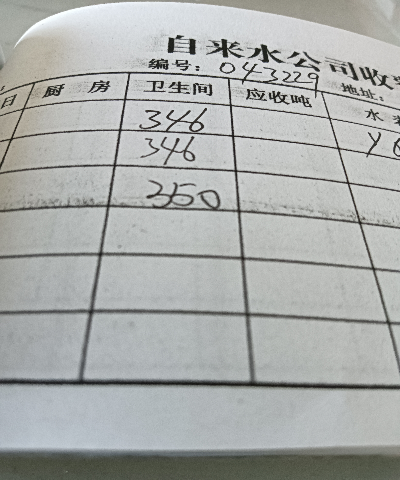 自来水公司收
编号：043229 地址：
日 厨房 卫生间 应收吨 水
346
346
350